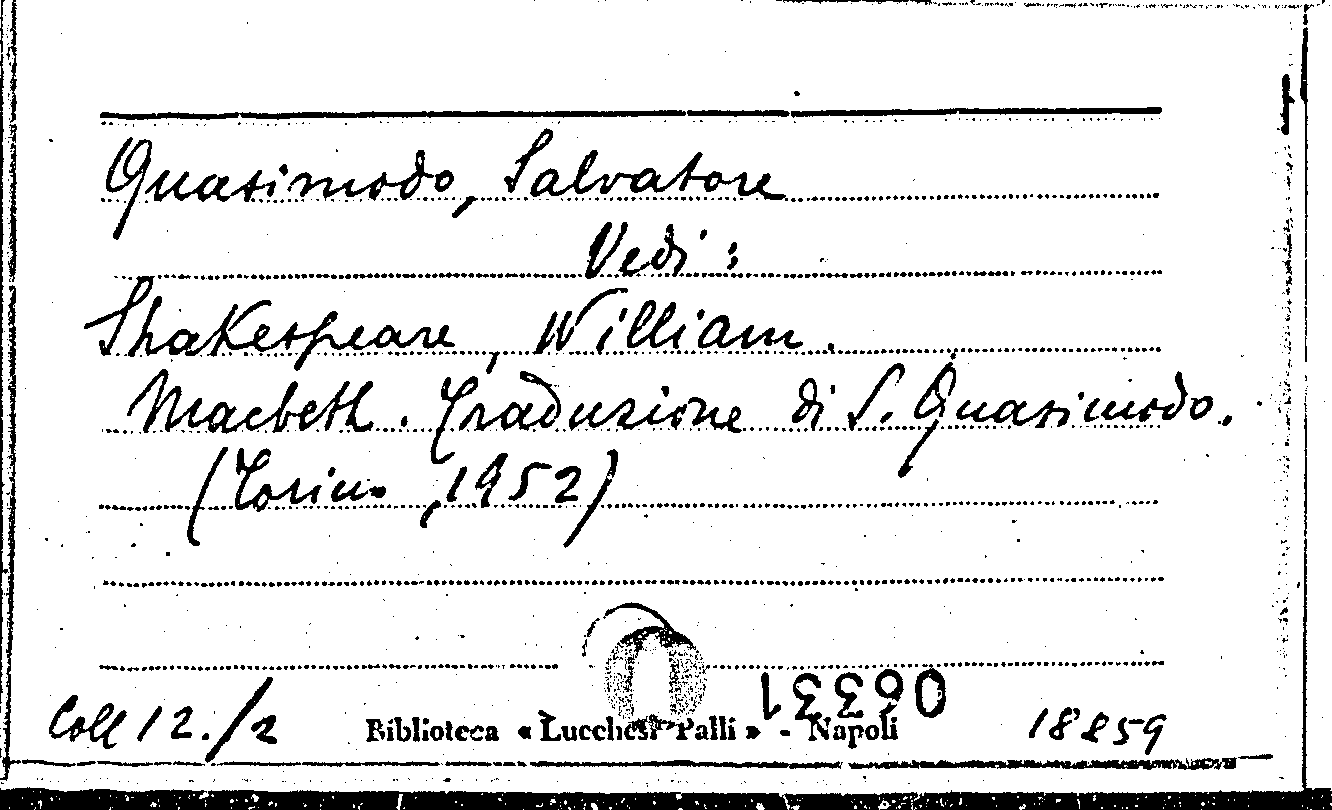 Quasimodo, Salvatore
Vedi:
Shakespeare, William.
Macbeth. Traduzione di S. Quasimodo.
(Torino, 1952)
06331
Coll 12./2 Biblioteca « Lucchesi Palli » - Napoli 18859